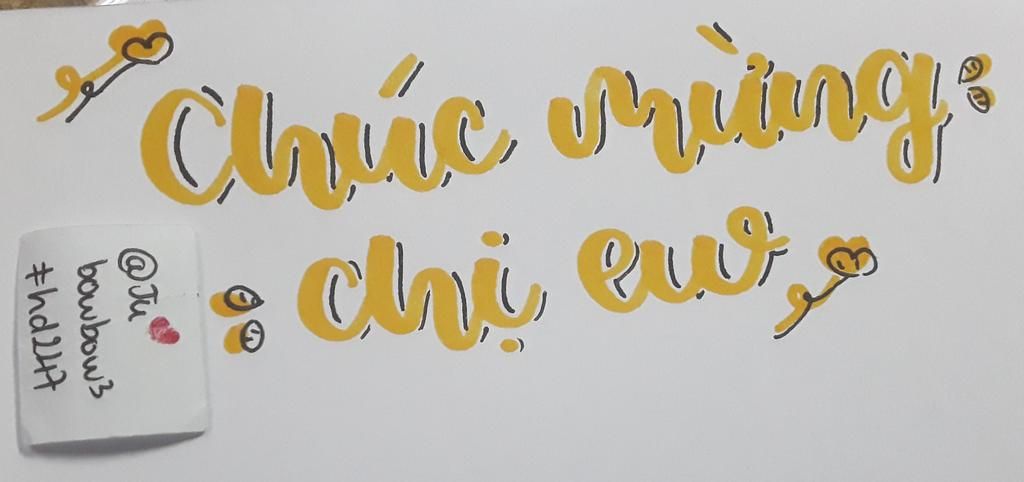 Chúc mừng
chị ew
@Ju
bowbow3
#hd247